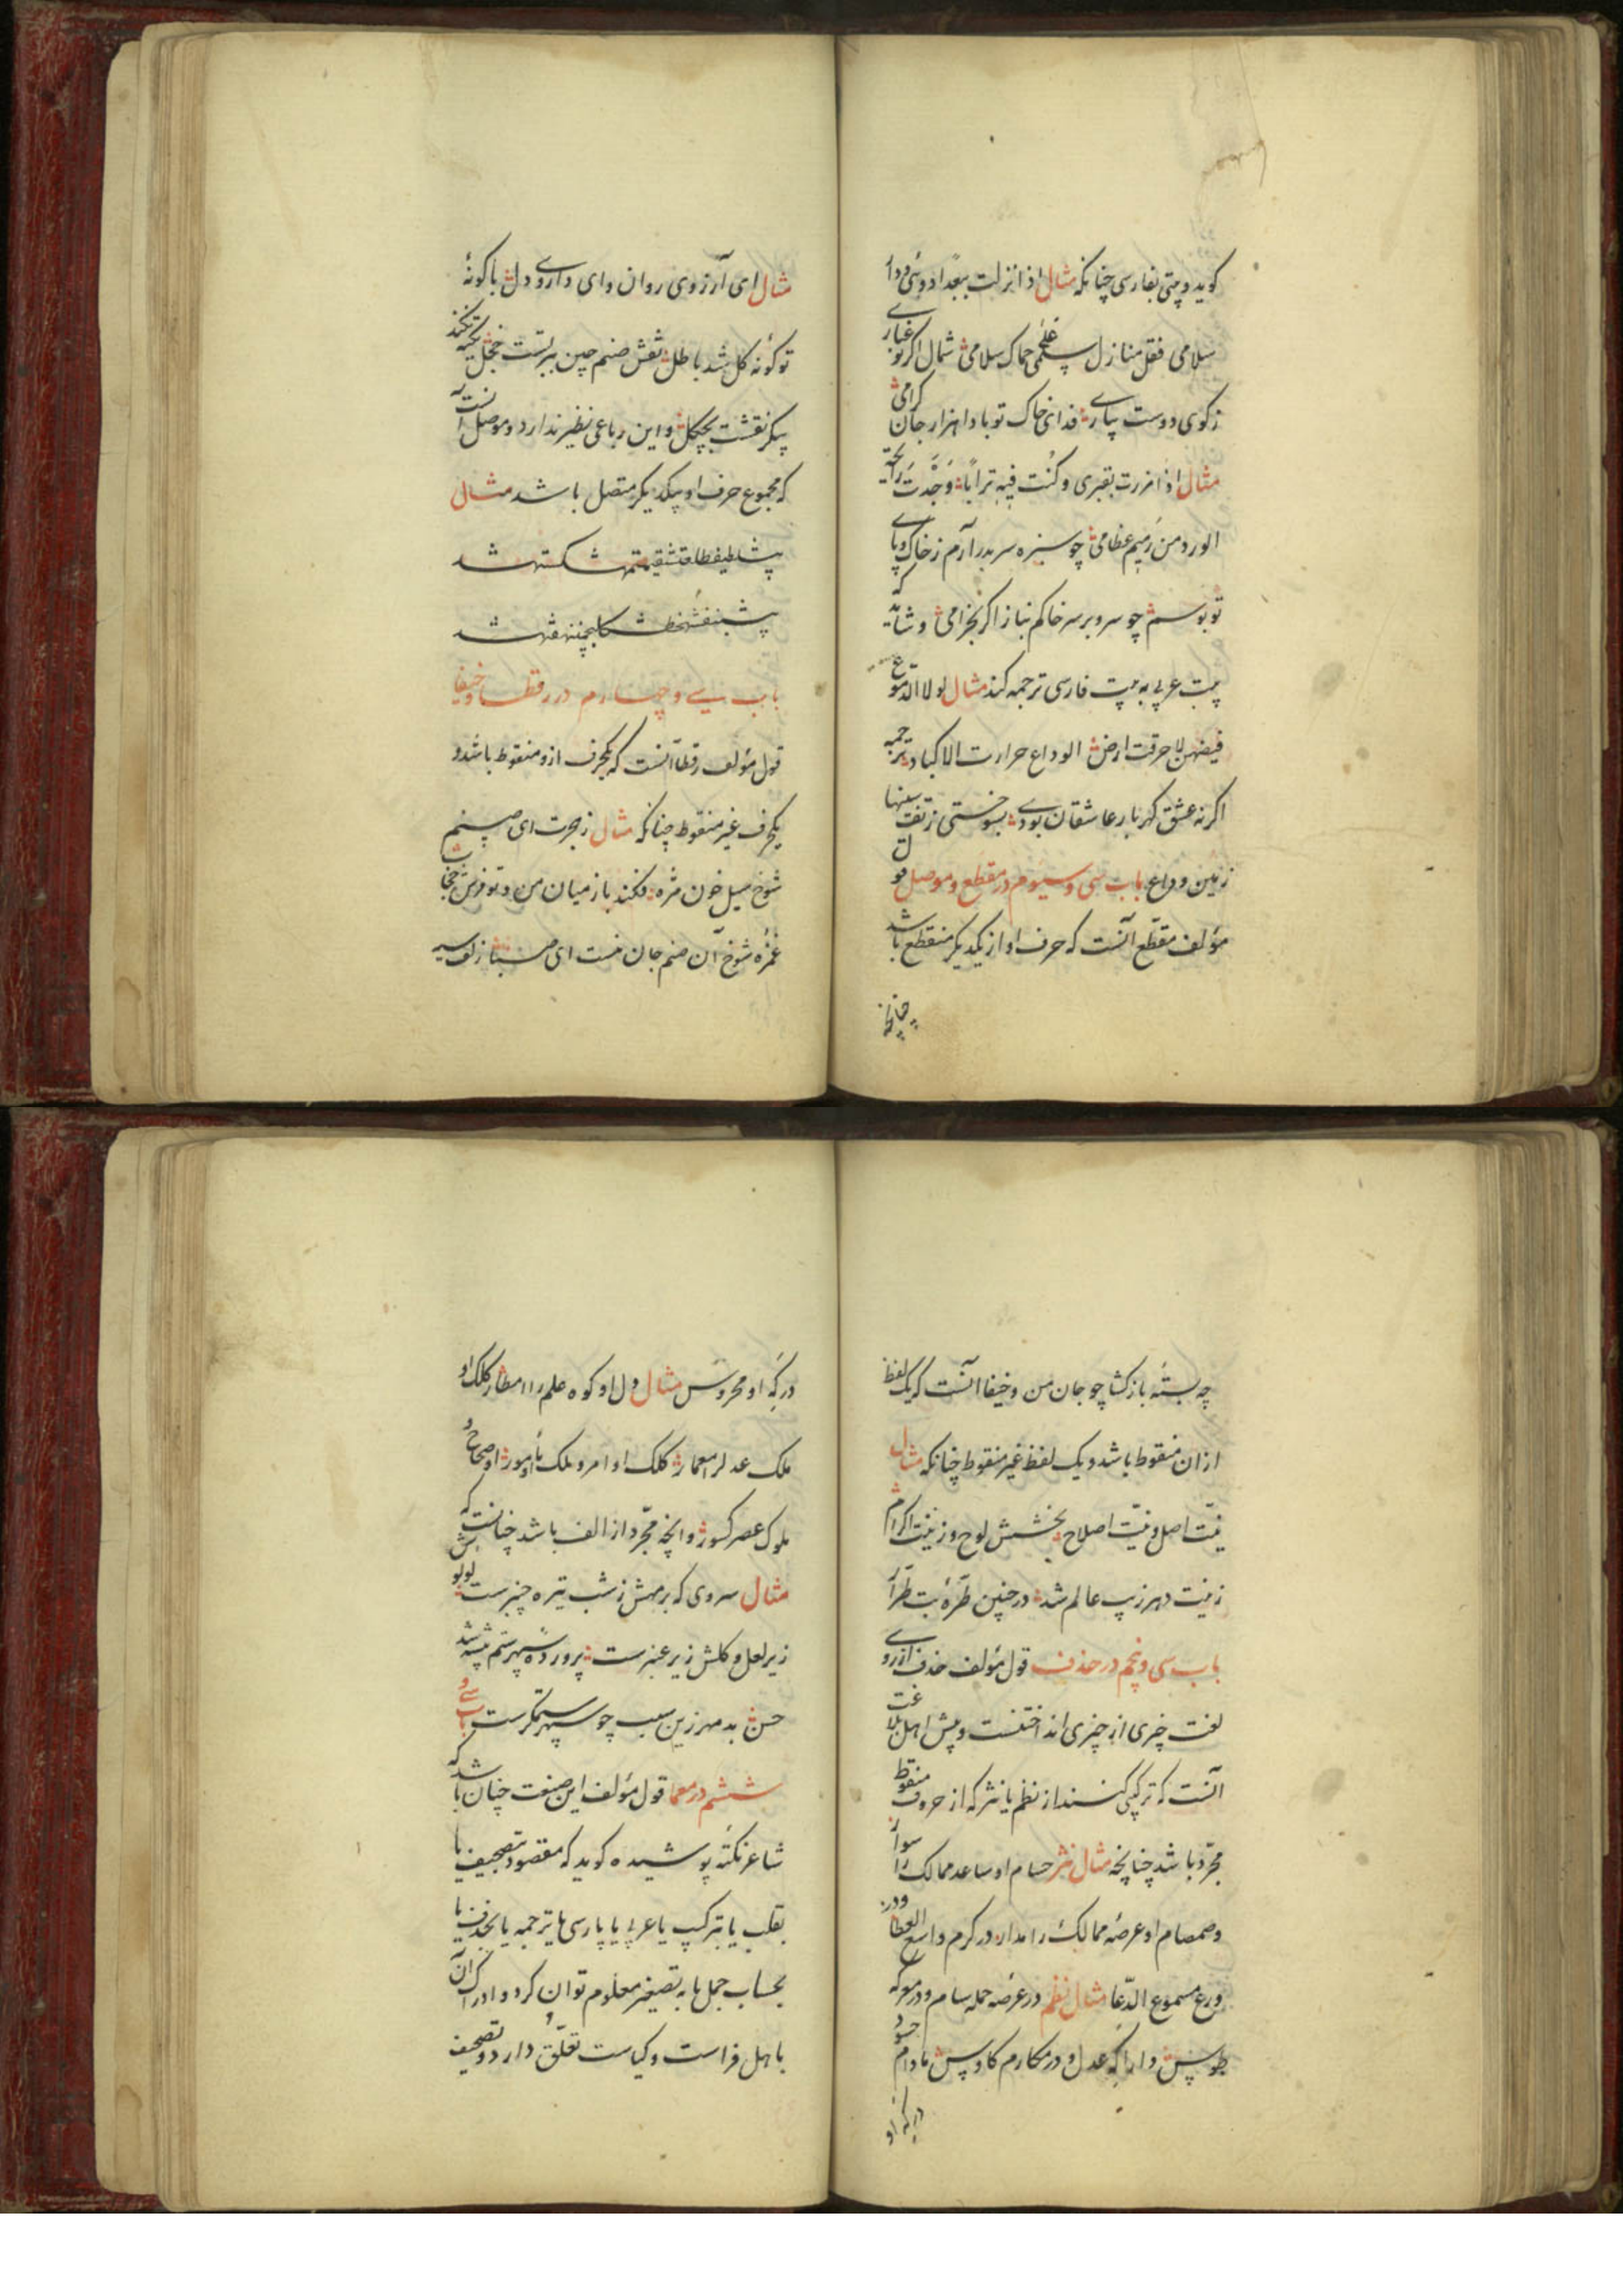 کوید و بیتی بفارسی چنانکه مثال اذا نزلت ببغداد
سلامی فقل منازل سلمی علی حماک سلامی شمال اکر تو غباری
زکوی دوست بیاری فدای خاک تو بادا هزار جان کرامی
مثال اذا مررت بقبری و کنت فیه ترابا وجدت رایحة
الورد من رمیم عظامی چو سبزه سر بدر آرم ز خاک و پای
تو بوسم چو سرو بر سر خاکم بناز اکر بخرامی و شاید که
بیت عربی به بیت فارسی ترجمه کند مثال لولا الدموع
فیضهن لاحرقت ارض الوداع حرارت الاکباد ترجمه
اکر نه عشق کهربار عاشقان بودی بسوختی ز تف سینها
زمین وداع باب سی و سیوم در مقطع و موصل قول
مؤلف مقطع آنست که حرف او از یکدیکر منقطع باشد
چنانچه
مثال ای آرزوی روان وای داروی دل با کونهٔ
تو کونه کل شد باطل نقش صنم چین ببر تست خجل
پیکر نقشت بچکل و این رباعی نظیر ندارد و موصل آنست
که مجموع حرف او بیکدیکر متصل باشد مثال
باب سی و چهارم در رقطا و خیفا
قول مؤلف رقطا آنست که یکحرف ازو منقوط باشد و
یکحرف غیر منقوط چنانکه مثال ز هجرت ای صنم
شوخ سیل خون مژه فکند باز میان من و تو فرش
غمزه شوخ آن صنم جان منست ای زلف سیه
چه بسته باز کشا چو جان من و خیفا آنست که یک لفظ
ازان منقوط باشد و یک لفظ غیر منقوط چنانکه مثال
نیت اصل و نیت اصلاح بخشش لوح و زینت اکرام
زینت دهر زیب عالم شد در چنین طره بت طرار
باب سی و پنجم در حذف قول مؤلف حذف از روی
لغت چیزی از چیزی انداختنست و پیش اهل بلاغت
آنست که ترکیبی کنند از نظم یا نثر که از حروف منقوط
مجرد باشد چنانچه مثال نثر حسام او ساعد ممالک را سوار
و صمصام او عرصهٔ ممالک را مدار در کرم واسع العطا و در
ورع مسموع الدعا مثال نظم در عرصه حمله سام و در معرکه
طوس دارا که عدل و در مکارم کاوس مادام
درکه او
درکه او محروس مثال دل او کوه علم را امطار کلک او
ملک عدل را معمار کلک او امر و ملک مأمور
ملوک عصر و آنچه مجرد از الف باشد چنانست که
مثال سروی که بر مهش ز شب تیره چنبرست لولو
زیر لعل و کلش زیر عنبرست پرورده سپهر ستم پیشه شد
حسن بد مهر زین سبب چو سپهر ستمکرست باب سی و
ششم در معما قول مؤلف این صنعت چنان باشد که
شاعر نکته پوشیده کوید که مقصود بتصحیف یا
بقلب یا بترکیب یا عربی یا پارسی یا بترجمه یا بحذف یا
بحساب جمل یا به تصغیر معلوم توان کرد و ادراک آن
باهل فراست و کیاست تعلق دارد و تصحیف